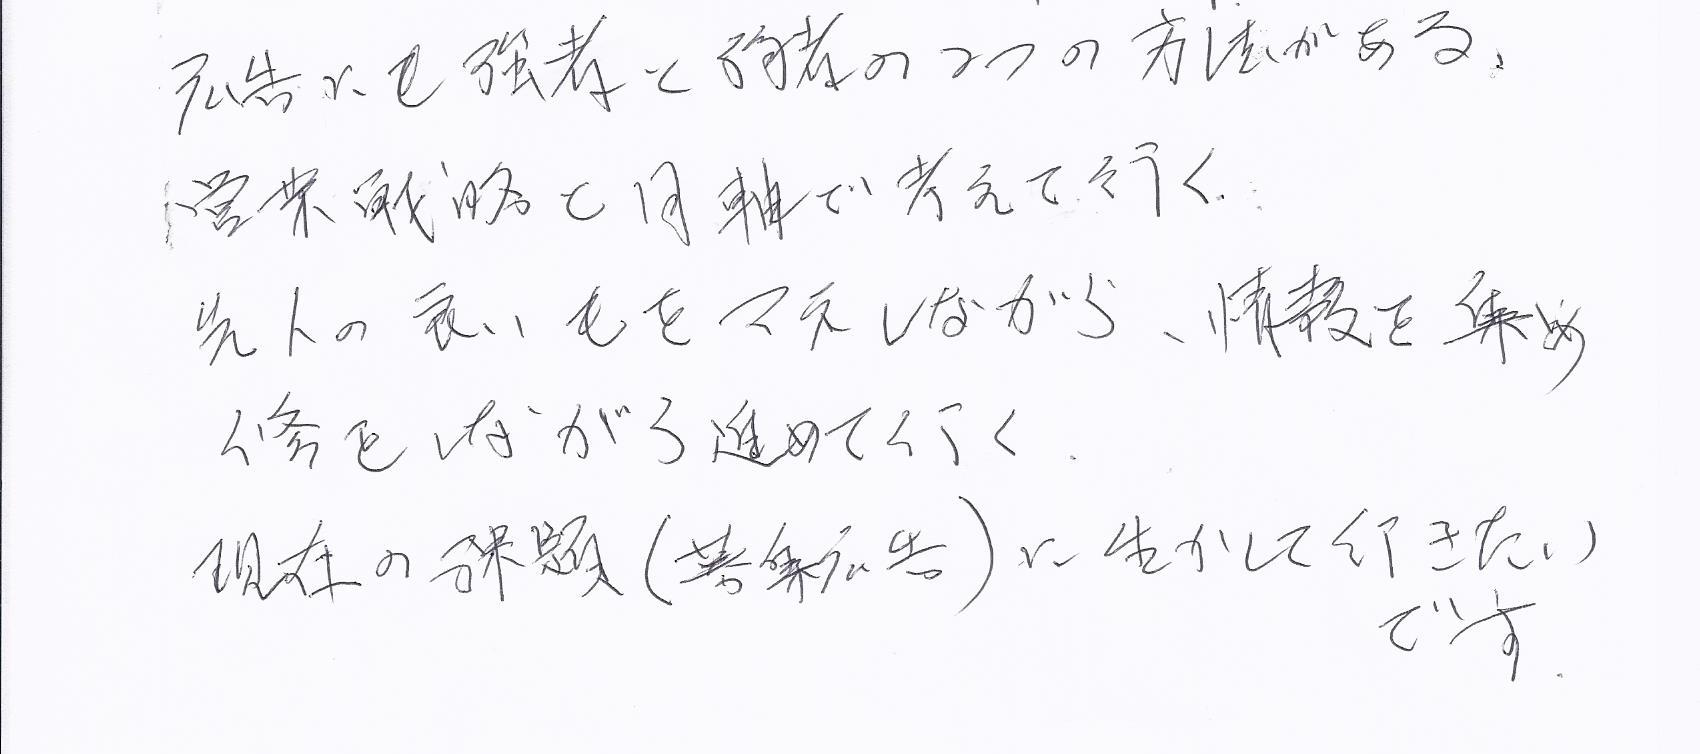 広告にも強者と弱者の2つの方法がある。
営業戦略と同軸で考えて行く。
先人の良いもをマネしながら、情報を集め
修をしながら進めて行く.
現在の課題(募集広告)に生かして行きたい
です.